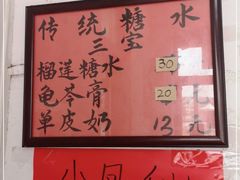 传统糖水
三宝
榴莲糖水 30
龟苓膏 20 元
单皮奶 13 元
小凤